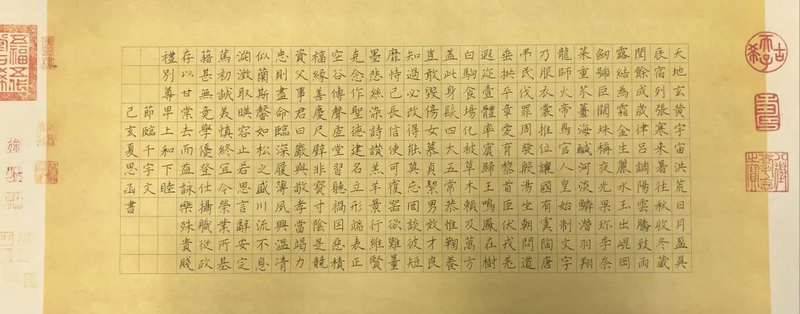 天地玄黃宇宙洪荒日月盈昃
辰宿列張寒來暑往秋收冬藏
閏餘成歲律呂調陽雲騰致雨
露結為霜金生麗水玉出崐岡
劍號巨闕珠稱夜光果珍李柰
菜重芥薑海鹹河淡鱗潛羽翔
龍師火帝鳥官人皇始制文字
乃服衣裳推位讓國有虞陶唐
弔民伐罪周發殷湯坐朝問道
垂拱平章愛育黎首臣伏戎羌
遐邇壹體率賓歸王鳴鳳在樹
白駒食場化被草木賴及萬方
蓋此身髮四大五常恭惟鞠養
豈敢毀傷女慕貞絜男效才良
知過必改得能莫忘罔談彼短
靡恃己長信使可覆器欲難量
墨悲絲染詩讚羔羊景行維賢
克念作聖德建名立形端表正
空谷傳聲虛堂習聽禍因惡積
福緣善慶尺璧非寶寸陰是競
資父事君曰嚴與敬孝當竭力
忠則盡命臨深履薄夙興溫凊
似蘭斯馨如松之盛川流不息
淵澂取暎容止若思言辭安定
篤初誠美慎終宜令榮業所基
籍甚無竟學優登仕攝職從政
存以甘棠去而益詠樂殊貴賤
禮別尊卑上和下睦
節臨千字文
己亥夏思函書